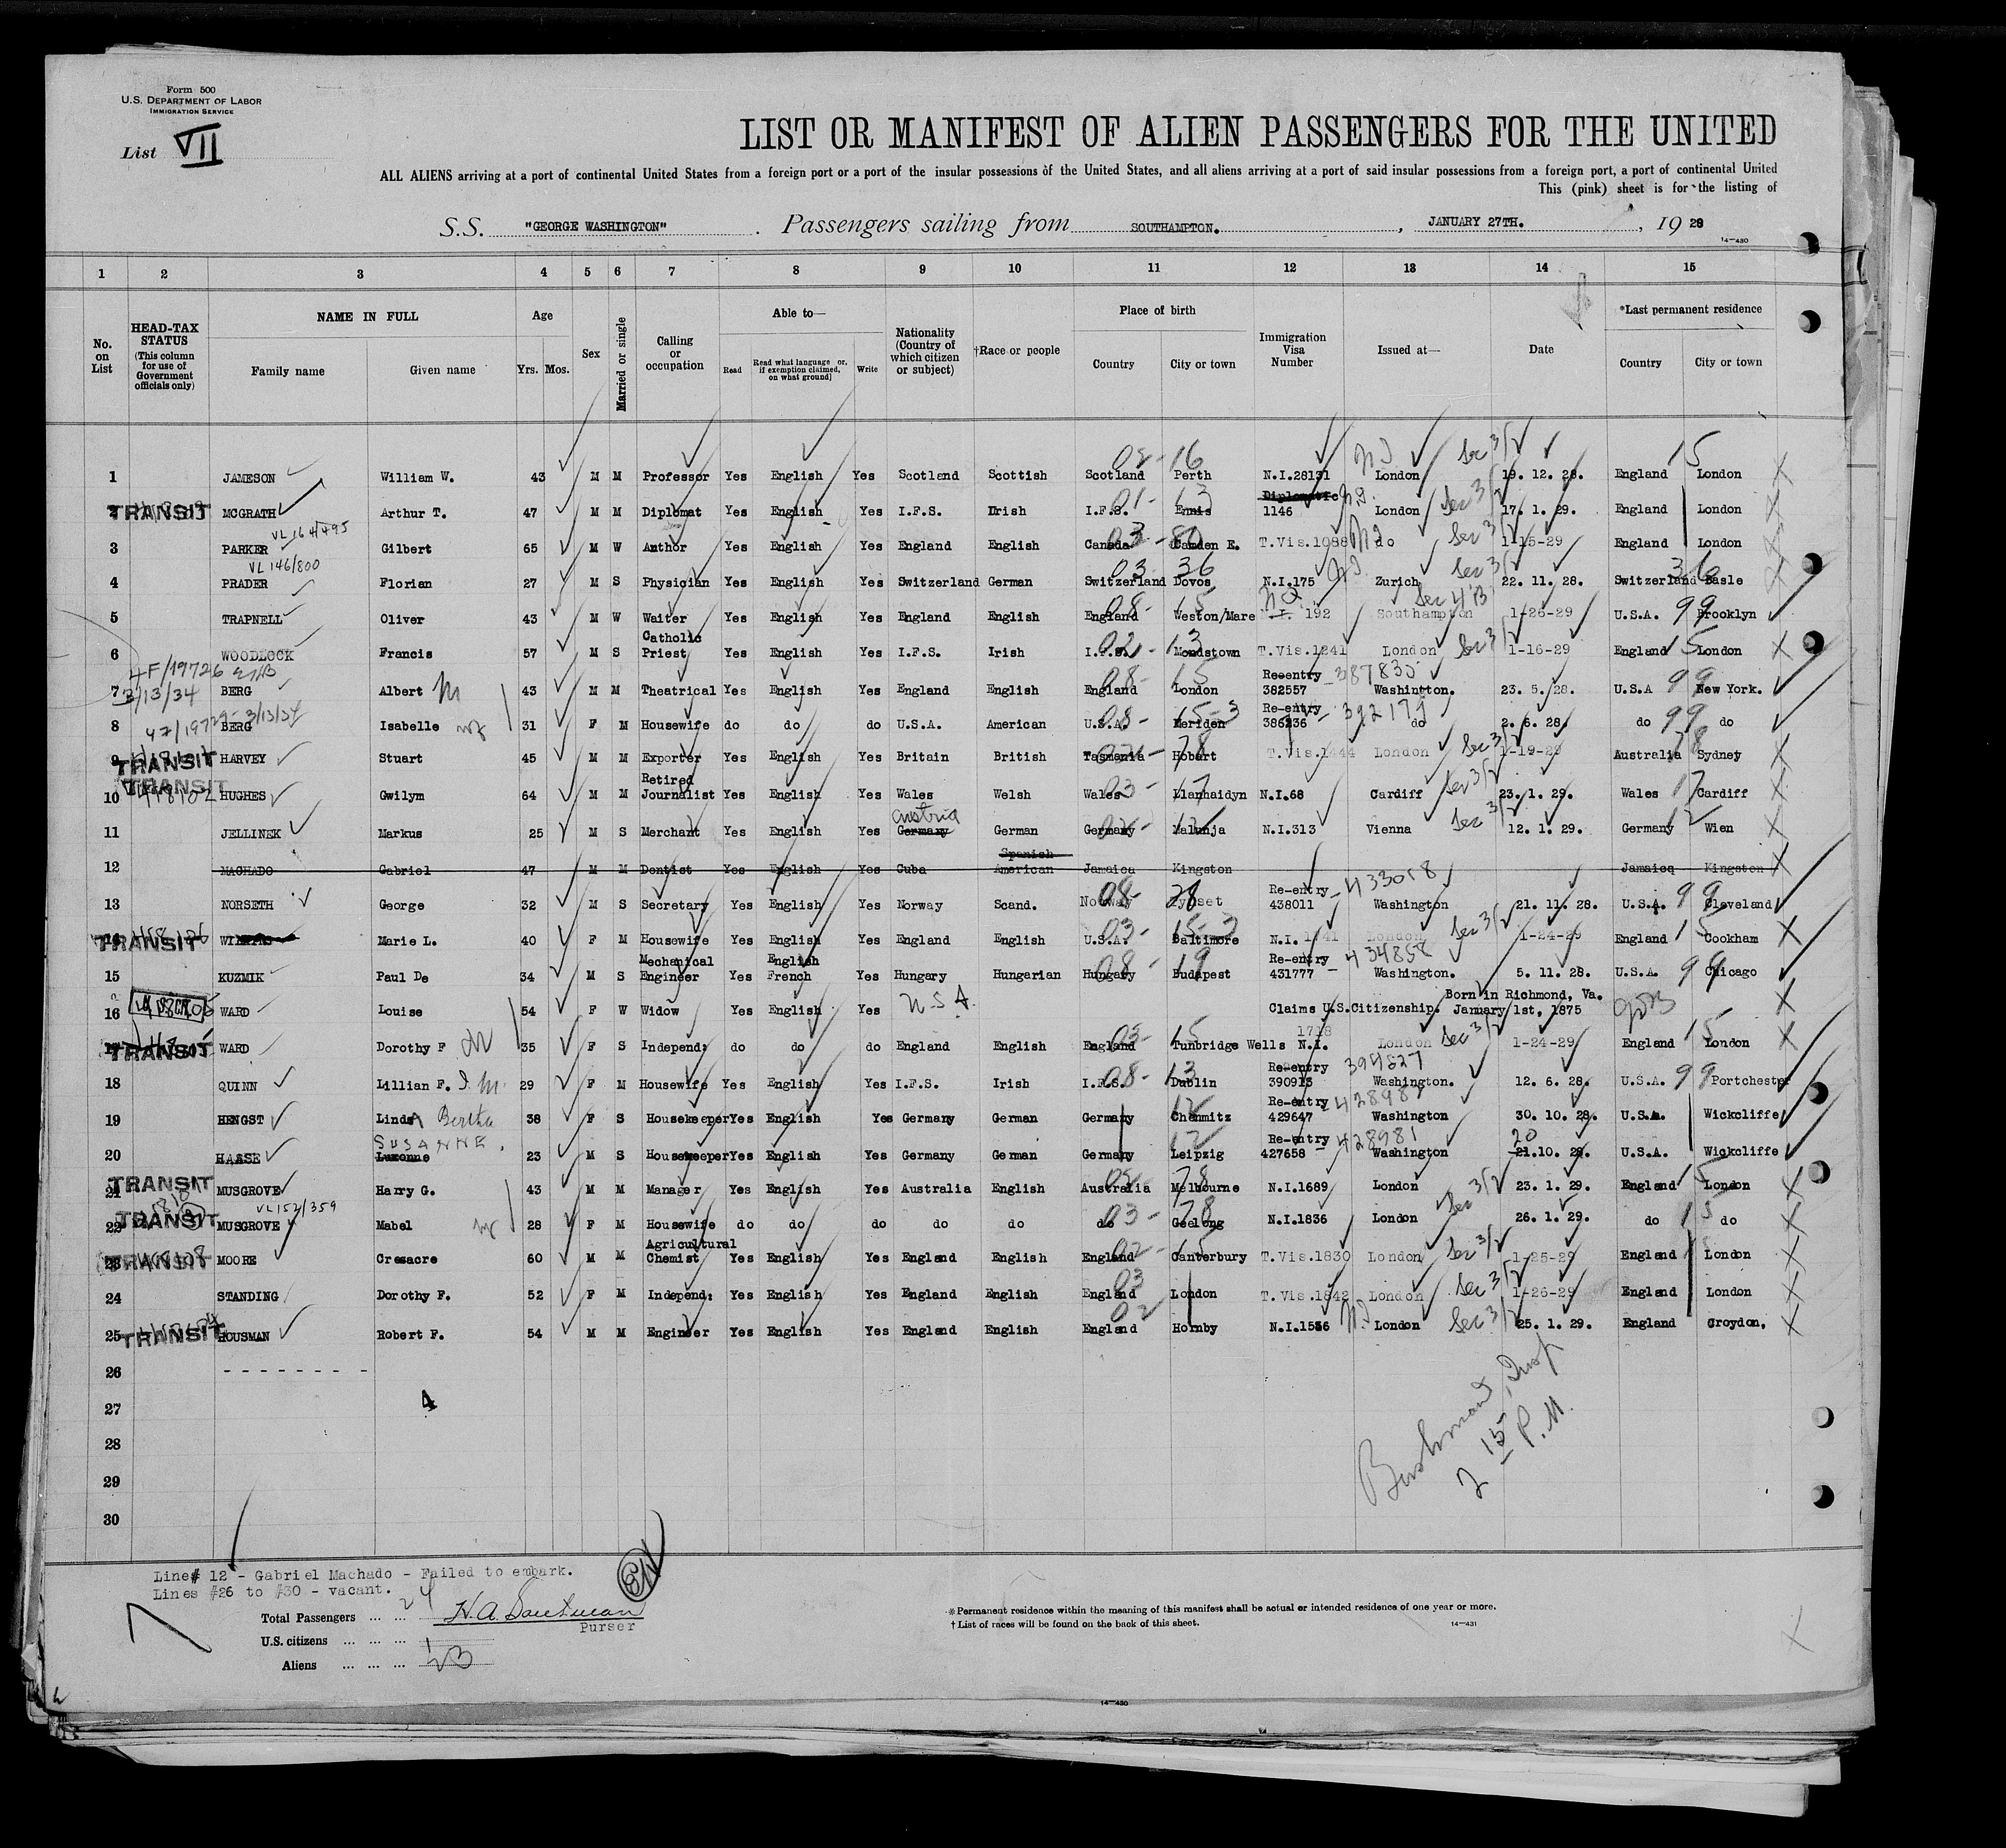 Form 500
U.S. DEPARTMENT OF LABOR
IMMIGRATION SERVICE
List VII
LIST OR MANIFEST OF ALIEN PASSENGERS FOR THE UNITED
ALL ALIENS arriving at a port of continental United States from a foreign port or a port of the insular possessions of the United States, and all aliens arriving at a port of said insular possessions from a foreign port, a port of continental United
This (pink) sheet is for the listing of
S.S. "GEORGE WASHINGTON" . Passengers sailing from SOUTHAMPTON. , JANUARY 27TH. , 19 29
14—430
1 2 3 4 5 6 7 8 9 10 11 12 13 14 15
No. on List
HEAD-TAX STATUS (This column for use of Government officials only)
NAME IN FULL Family name Given name
Age Yrs. Mos.
Sex
Married or single
Calling or occupation
Able to— Read Read what language or, if exemption claimed, on what ground) Write
Nationality (Country of which citizen or subject)
†Race or people
Place of birth Country City or town
Immigration Visa Number
Issued at—
Date
*Last permanent residence Country City or town
1 JAMESON William W. 43 M M Professor Yes English Yes Scotland Scottish Scotland Perth N.I.28131 London 19. 12. 28. England London
TRANSIT MCGRATH Arthur T. 47 M M Diplomat Yes English Yes I.F.S. Irish I.F.S. Ennis Diplomatic 1146 London 17. 1. 29. England London
VL 164/495
3 PARKER Gilbert 65 M W Author Yes English Yes England English Canada Camden E. T.Vis.1088 do 1-15-29 England London
VL 146/800
4 PRADER Florian 27 M S Physician Yes English Yes Switzerland German Switzerland Dovos N.I.175 Zurich 22. 11. 28. Switzerland Basle
5 TRAPNELL Oliver 43 M W Waiter Yes English Yes England English England Weston/Mare 192 Southampton 1-26-29 U.S.A. 99 Brooklyn
6 WOODLOCK Francis 57 M S Catholic Priest Yes English Yes I.F.S. Irish I.F.S. Mondstown T.Vis.1241 London 1-16-29 England London
4F/19726
3/13/34
7 BERG Albert M 43 M M Theatrical Yes English Yes England English England London Reentry 382557 - 387835 Washington. 23. 5. 28. U.S.A 99 New York.
3/13/34
8 BERG Isabelle wf 31 F M Housewife do do do U.S.A. American U.S.A. Meriden Re-entry 386236 - 392179 do 2. 6. 28. do 99 do
9 TRANSIT HARVEY Stuart 45 M M Exporter Yes English Yes Britain British Tasmania Hobart T.Vis.1444 London 1-19-29 Australia Sydney
TRANSIT
10 HUGHES Gwilym 64 M M Retired Journalist Yes English Yes Wales Welsh Wales Llanhaidyn N.I.68 Cardiff 23. 1. 29. Wales Cardiff
11 JELLINEK Markus 25 M S Merchant Yes English Yes Germany Austria German Germany Malunja N.I.313 Vienna 12. 1. 29. Germany Wien
12 MACHADO Gabriel 47 M M Dentist Yes English Yes Cuba Spanish American Jamaica Kingston Jamaica Kingston
13 NORSETH George 32 M S Secretary Yes English Yes Norway Scand. Norway Re-entry 438011 - 433018 Washington 21. 11. 28. U.S.A. 99 Cleveland
TRANSIT Marie L. 40 F M Housewife Yes English Yes England English U.S.A. Baltimore N.I. London 1-24-29 England Cookham
15 KUZMIK Paul De 34 M S Mechanical Engineer Yes English French Yes Hungary Hungarian Hungary Budapest Re-entry 431777 - 434858 Washington. 5. 11. 28. U.S.A. 99 Chicago
16 WARD Louise 54 F W Widow Yes English Yes U.S.A. Claims U.S.Citizenship. Born in Richmond, Va. January 1st, 1875
TRANSIT WARD Dorothy F 35 F S Independ: do do do England English England Tunbridge Wells N.I. 1718 London 1-24-29 England London
18 QUINN Lillian F. 29 F M Housewife Yes English Yes I.F.S. Irish I.F.S. Dublin Re-entry 390913 394827 Washington. 12. 6. 28. U.S.A. 99 Portchester
19 HENGST Linda Bertha 38 F S Housekeeper Yes English Yes Germany German Germany Chemnitz Re-entry 429647 Washington 30. 10. 28. U.S.A. Wickcliffe
SUSANNE.
20 HASSE 23 M S Housekeeper Yes English Yes Germany German Germany Leipzig Re-entry 427658 - 428981 Washington 20 21.10. 28. U.S.A. Wickcliffe
21 TRANSIT MUSGROVE Harry G. 43 M M Manager Yes English Yes Australia English Australia Melbourne N.I.1689 London 23. 1. 29. England London
VL152/359
22 TRANSIT MUSGROVE Mabel 28 F M Housewife do do do do do do Geelong N.I.1836 London 26. 1. 29. do do
23 TRANSIT MOORE Cresacre 60 M M Agricultural Chemist Yes English Yes England English England Canterbury T.Vis.1830 London 1-25-29 England London
24 STANDING Dorothy F. 52 F M Independ: Yes English Yes England English England London T.Vis.1842 London 1-26-29 England London
25 TRANSIT HOUSMAN Robert F. 54 M M Engineer Yes English Yes England English England Hornby N.I.1536 London 25. 1. 29. England Croydon.
26 - - - - - - - - -
27 4
28
29
30
Bushman, Insp
2 15 P.M.
Line# 12 - Gabriel Machado - Failed to embark.
Lines #26 to #30 - vacant.
Total Passengers ... ... 24
Purser
U.S. citizens ... ... ... 1
Aliens ... ... ... 23
*Permanent residence within the meaning of this manifest shall be actual or intended residence of one year or more.
†List of races will be found on the back of this sheet. 14—431
14—430